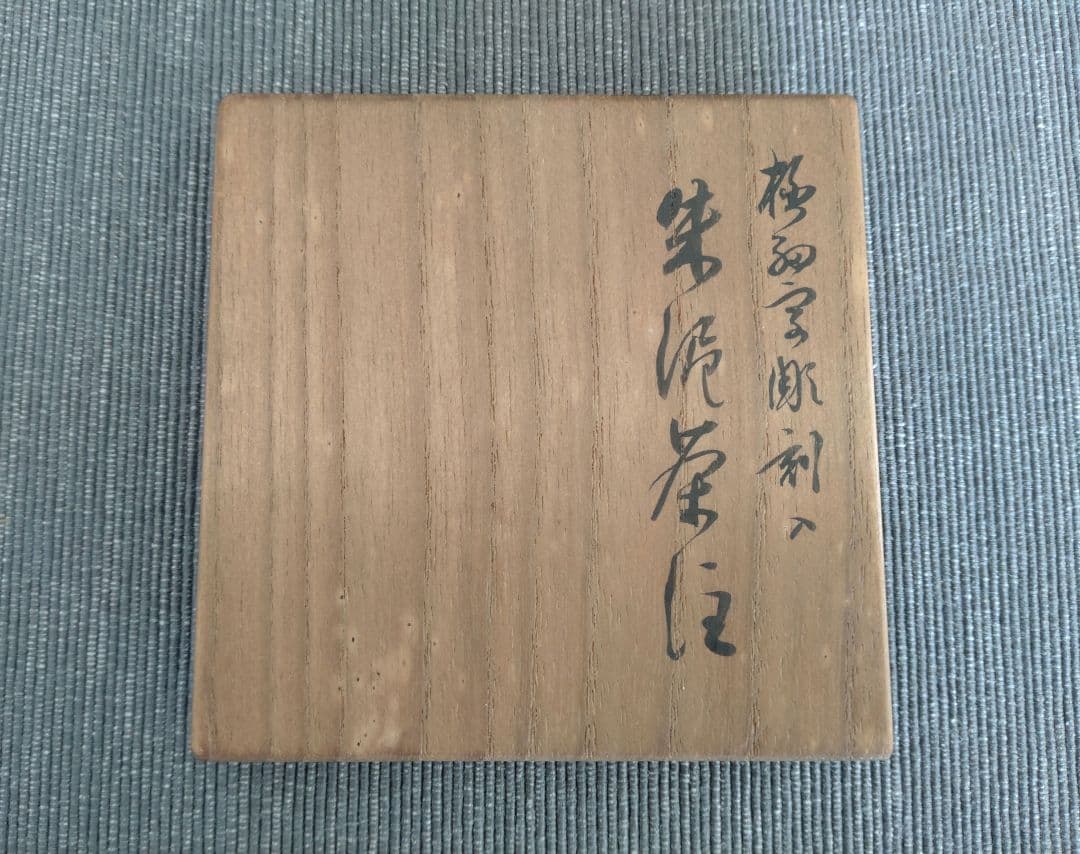 極細字彫刻入
朱泥茶注